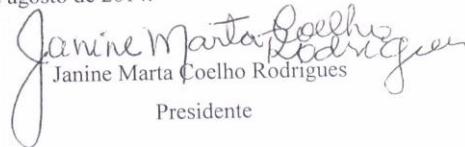 agosto de 2014.
Janine Marta Coelho
Rodrigues
Janine Marta Coelho Rodrigues
Presidente